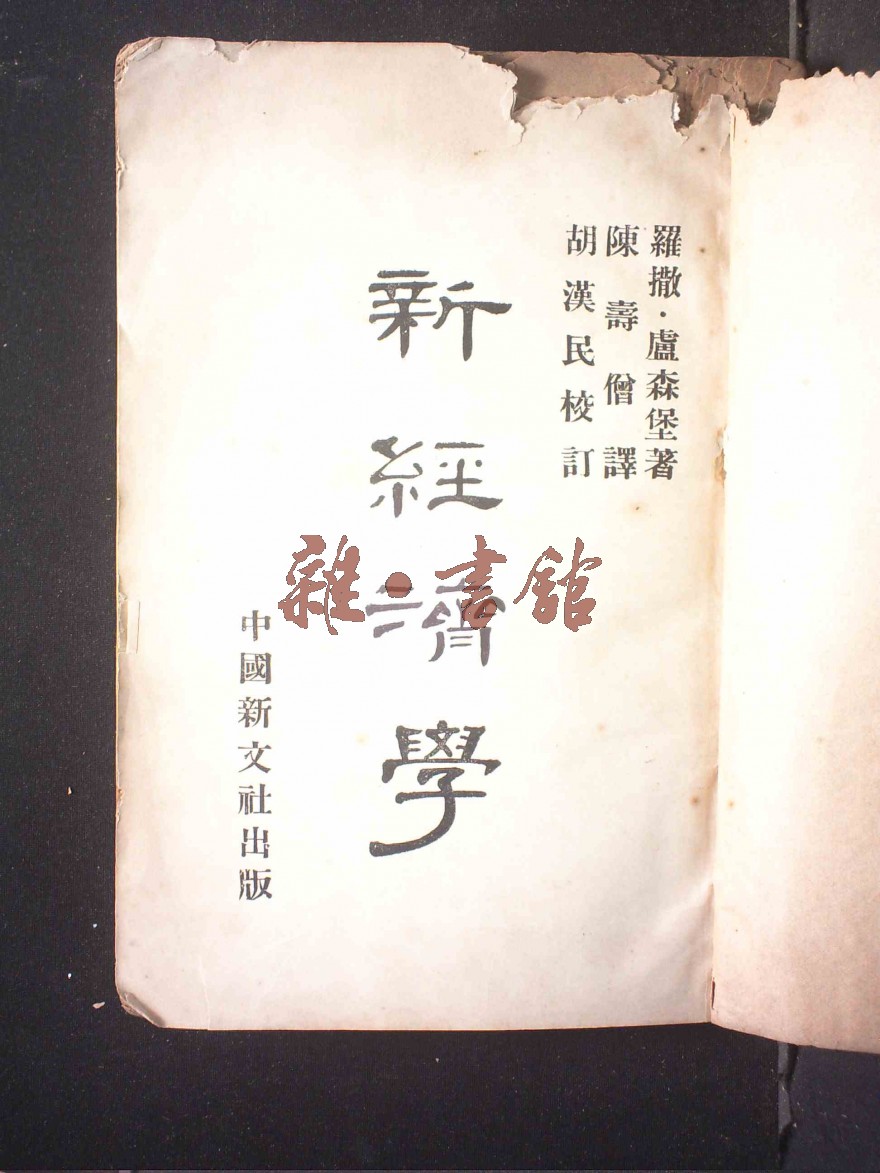 羅撒·盧森堡著
陳壽僧譯
胡漢民校訂
新經濟學
雜·書館
中國新文社出版